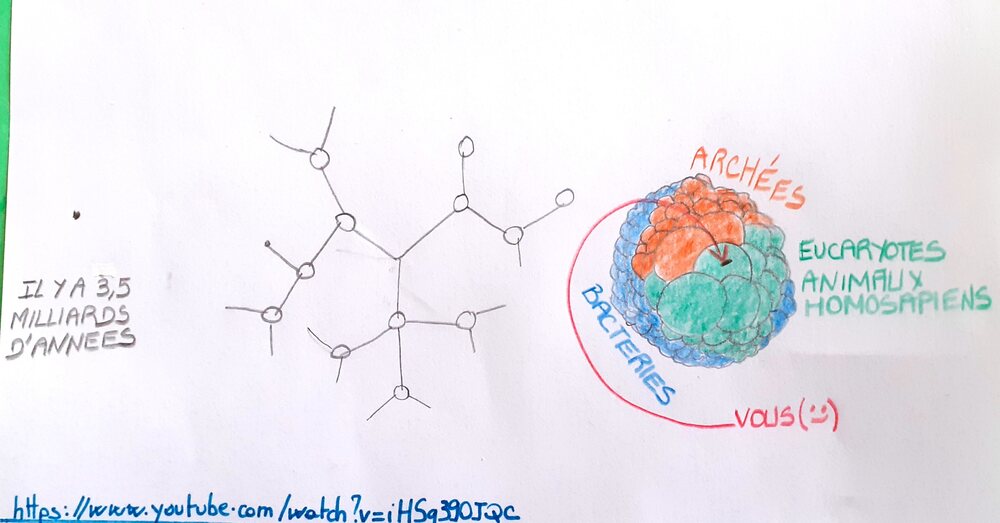 IL Y A 3,5
MILLIARDS
D'ANNEES
ARCHÉES
EUCARYOTES
ANIMAUX
HOMOSAPIENS
BACTERIES
VOUS(:)
https://www.youtube.com/watch?v=iHSq390JQc